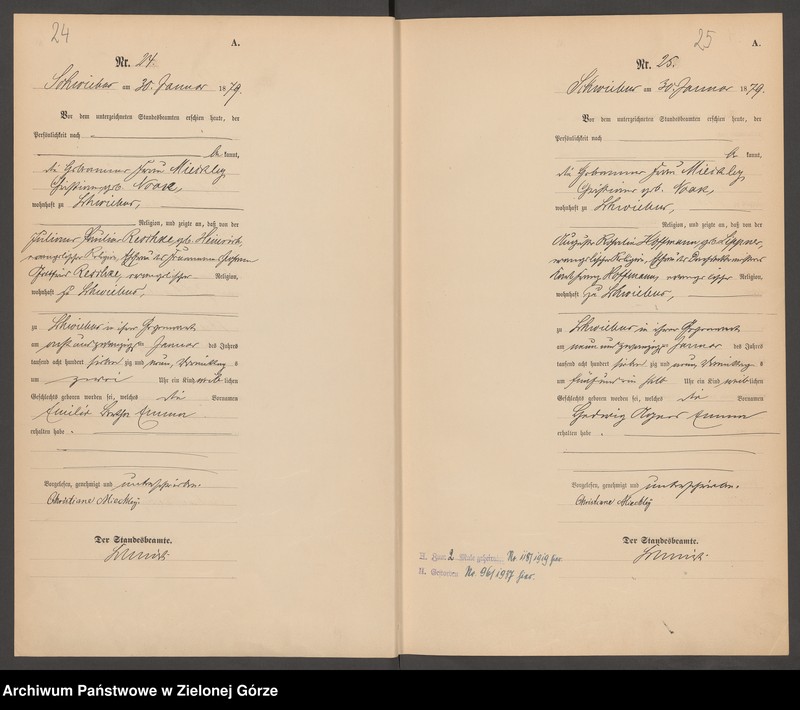 24
A.
Nr. 24.
Schwiebus am 30. Januar 1879.
Vor dem unterzeichneten Standesbeamten erschien heute, der
Persönlichkeit nach
be kannt,
die Hebamme Frau Mieckley
Christiane geb. Noack,
wohnhaft zu Schwiebus,
Religion, und zeigte an, daß von der
Juliane Pauline Reschke geb. Heinrich,
evangelischer Religion, Ehefrau des
Gottfried Reschke, evangelischer Religion,
wohnhaft zu Schwiebus,
zu Schwiebus in ihrer Gegenwart
am acht und zwanzigsten Januar des Jahres
tausend acht hundert sieben zig und neun, Vormittags
um zwei Uhr ein Kind weib lichen
Geschlechts geboren worden sei, welches die Vornamen
Emilie Bertha Emma
erhalten habe.
Vorgelesen, genehmigt und unterschrieben.
Christiane Mieckley
Der Standesbeamte.
25
A.
Nr. 25.
Schwiebus am 30. Januar 1879.
Vor dem unterzeichneten Standesbeamten erschien heute, der
Persönlichkeit nach
be kannt,
die Hebamme Frau Mieckley
Christiane geb. Noack,
wohnhaft zu Schwiebus,
Religion, und zeigte an, daß von der
Auguste Hoffmann, geb.
evangelischer Religion, Ehefrau des
Hoffmann, evangelischer Religion,
wohnhaft zu Schwiebus,
zu Schwiebus in ihrer Gegenwart
am neun und zwanzigsten Januar des Jahres
tausend acht hundert sieben zig und neun, Vormittags
um fünf und ein halb Uhr ein Kind weib lichen
Geschlechts geboren worden sei, welches die Vornamen
Hedwig Agnes Emma
erhalten habe.
Vorgelesen, genehmigt und unterschrieben.
Christiane Mieckley
Der Standesbeamte.
Z. 2 Male geheir. Nr. 118/1919
Nr. 96/1977
Archiwum Państwowe w Zielonej Górze